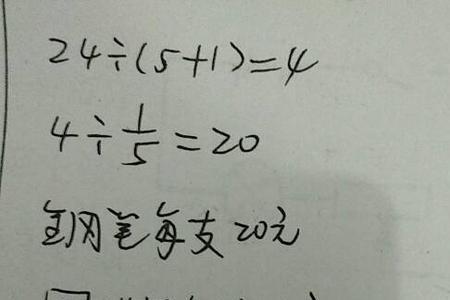 24÷(5+1)=4
4÷1/5=20
钢笔每支20元